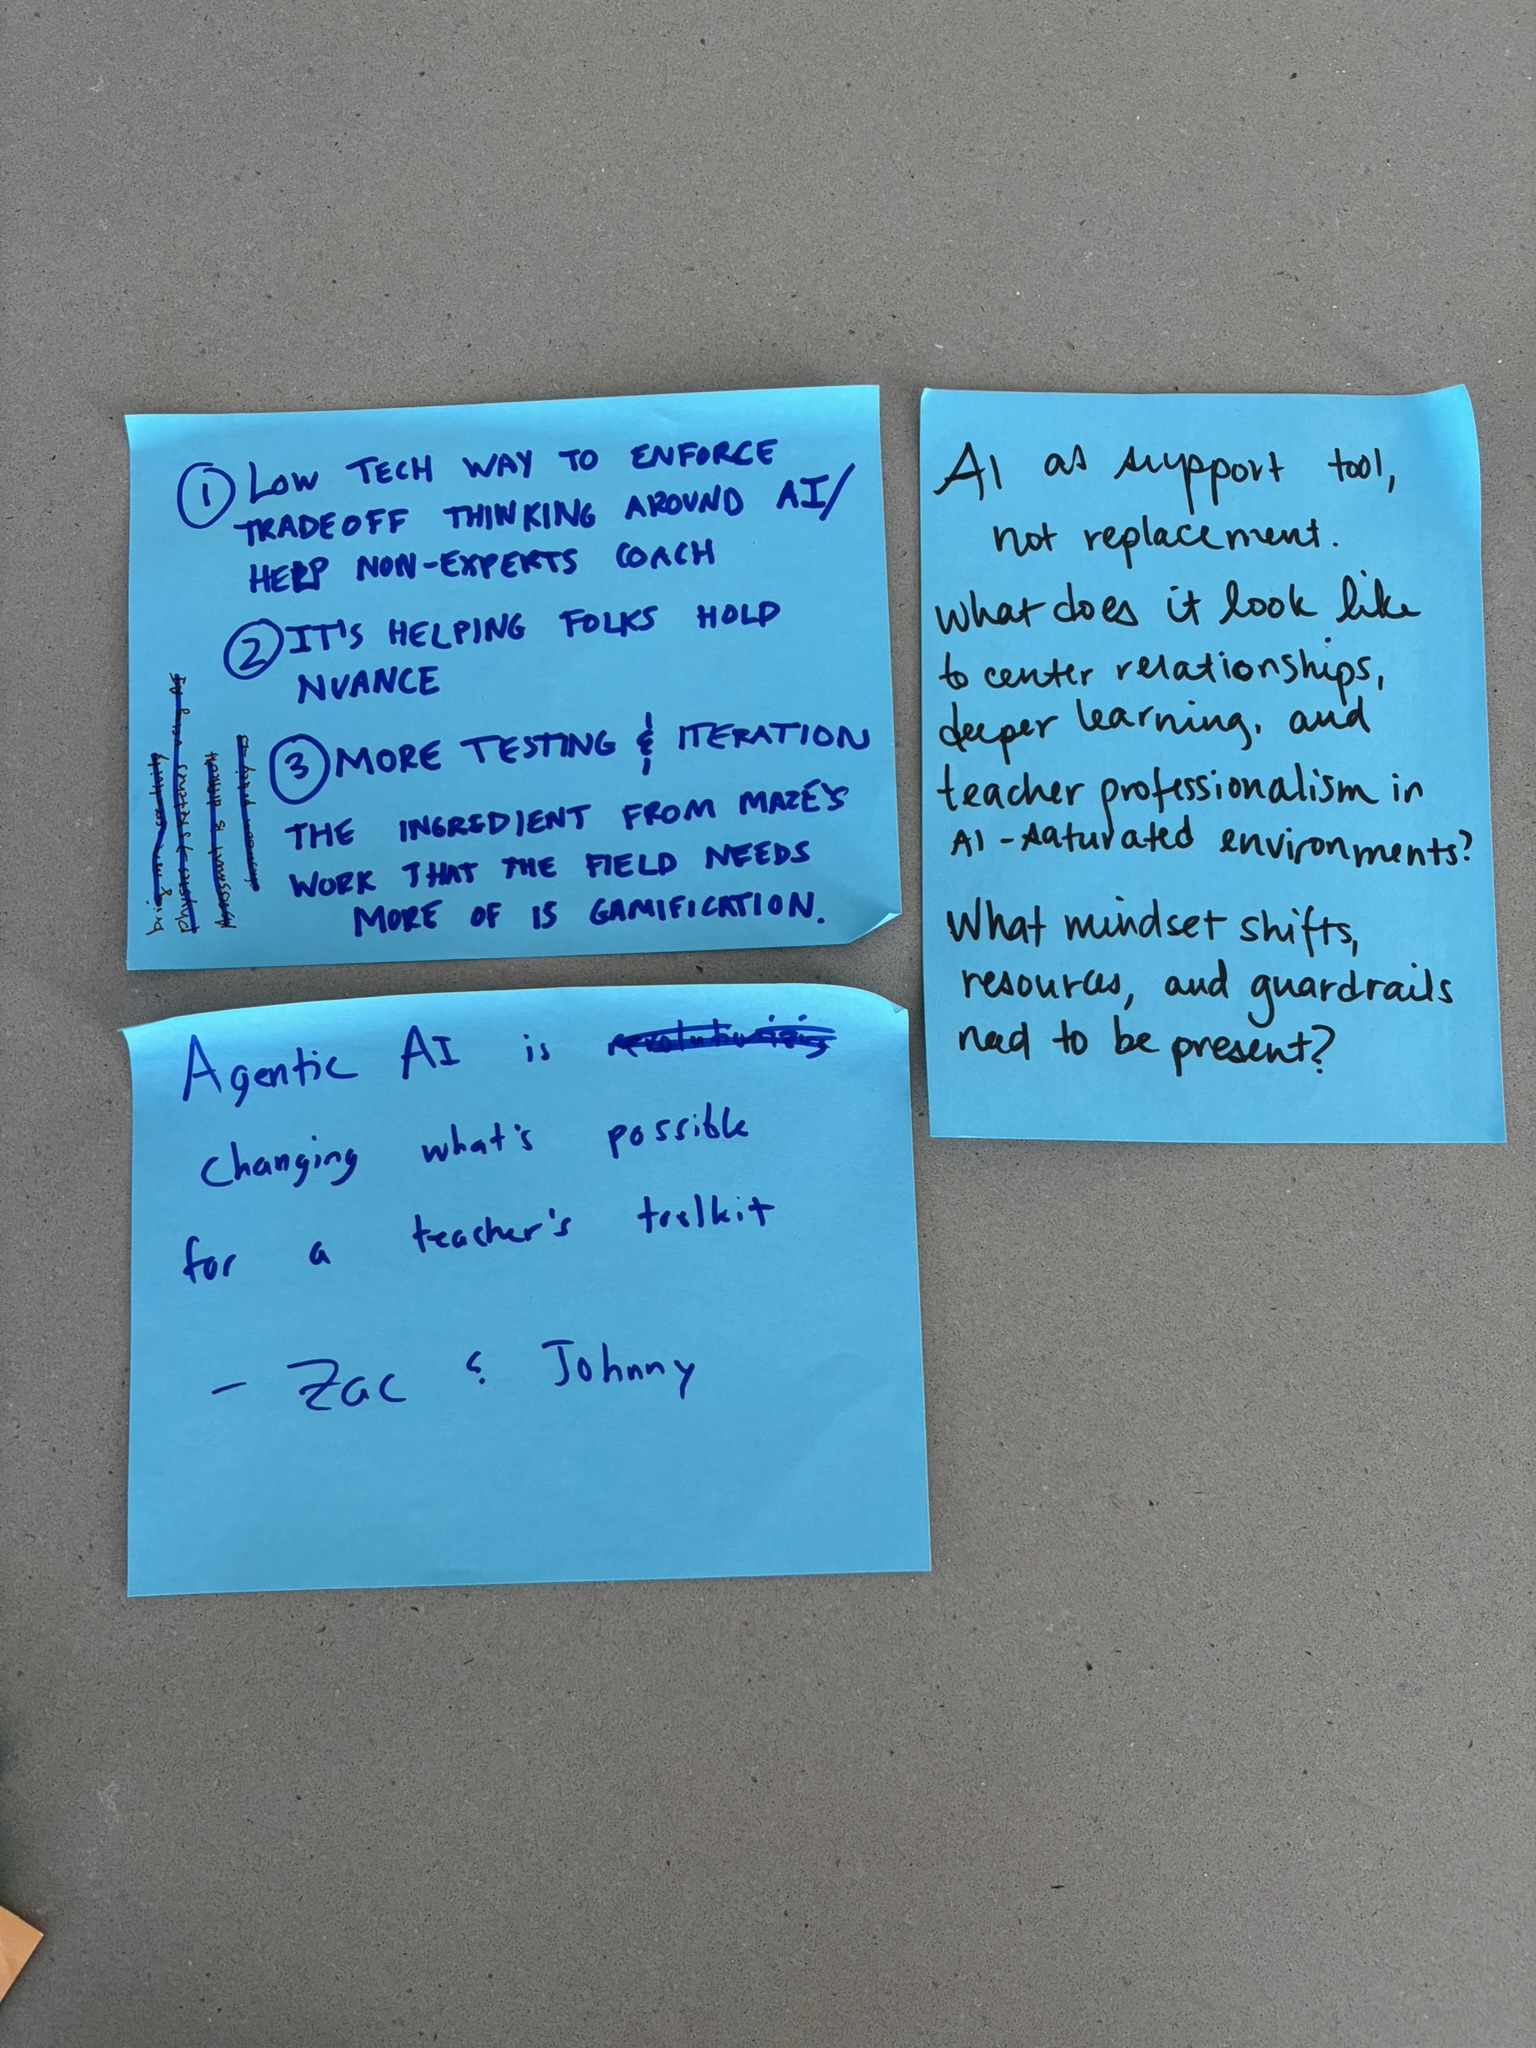 ① LOW TECH WAY TO ENFORCE
TRADEOFF THINKING AROUND AI/
HELP NON-EXPERTS COACH
② IT'S HELPING FOLKS HOLD
NUANCE
③ MORE TESTING & ITERATION
THE INGREDIENT FROM MAZE'S
WORK THAT THE FIELD NEEDS
MORE OF IS GAMIFICATION.
AI as support tool,
not replacement.
What does it look like
to center relationships,
deeper learning, and
teacher professionalism in
AI-saturated environments?
What mindset shifts,
resources, and guardrails
need to be present?
Agentic AI is revolutionizing
changing what's possible
for a teacher's toolkit
- Zac & Johnny